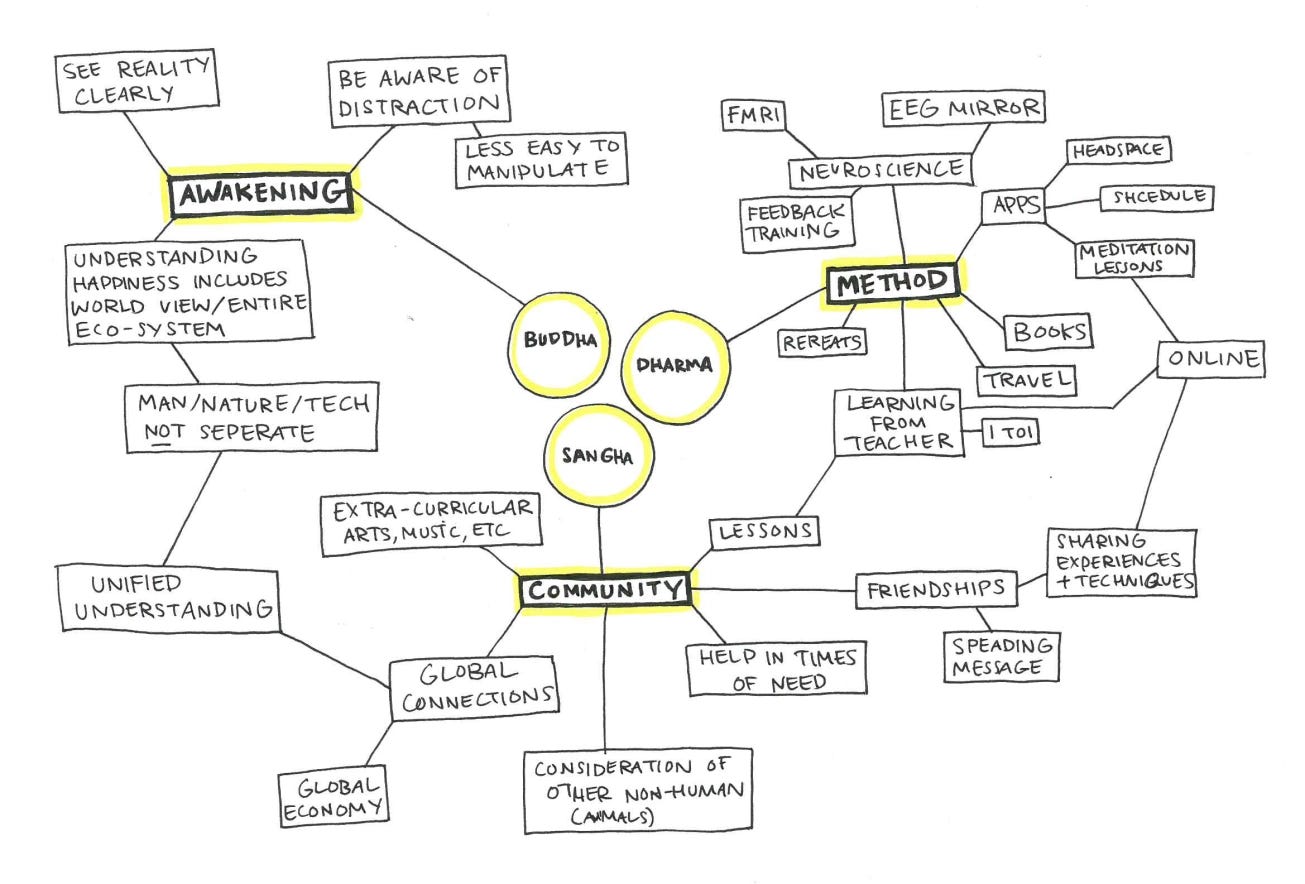 SEE REALITY
CLEARLY
BE AWARE OF
DISTRACTION
LESS EASY TO
MANIPULATE
AWAKENING
UNDERSTANDING
HAPPINESS INCLUDES
WORLD VIEW/ENTIRE
ECO-SYSTEM
MAN/NATURE/TECH
NOT SEPERATE
UNIFIED
UNDERSTANDING
BUDDHA
DHARMA
SANGHA
FMRI
EEG MIRROR
NEUROSCIENCE
FEEDBACK
TRAINING
HEADSPACE
APPS
SHCEDULE
MEDITATION
LESSONS
METHOD
REREATS
BOOKS
TRAVEL
ONLINE
LEARNING
FROM
TEACHER
1 TO 1
EXTRA-CURRICULAR
ARTS, MUSIC, ETC
LESSONS
COMMUNITY
FRIENDSHIPS
SHARING
EXPERIENCES
+ TECHNIQUES
SPEADING
MESSAGE
HELP IN TIMES
OF NEED
GLOBAL
CONNECTIONS
GLOBAL
ECONOMY
CONSIDERATION OF
OTHER NON-HUMAN
(ANIMALS)